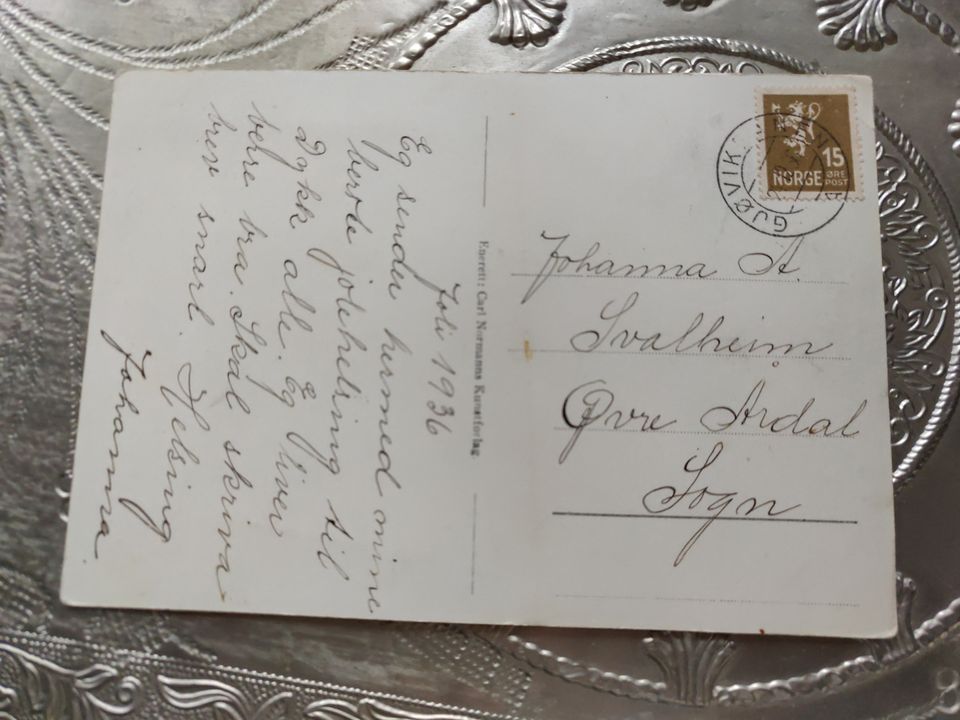 Joli 1936
Eg sender hermed mine
berste jolehelsing til
Dykk alle. Eg liver
behre bra. Skal skriva
brev snart. Helsing
Johanna.
Enerett: Carl Normanns Kunstforlag
GJØVIK
NORGE 15
ØRE
POST
Johanna A
Svalheim
Øvre Årdal
Sogn